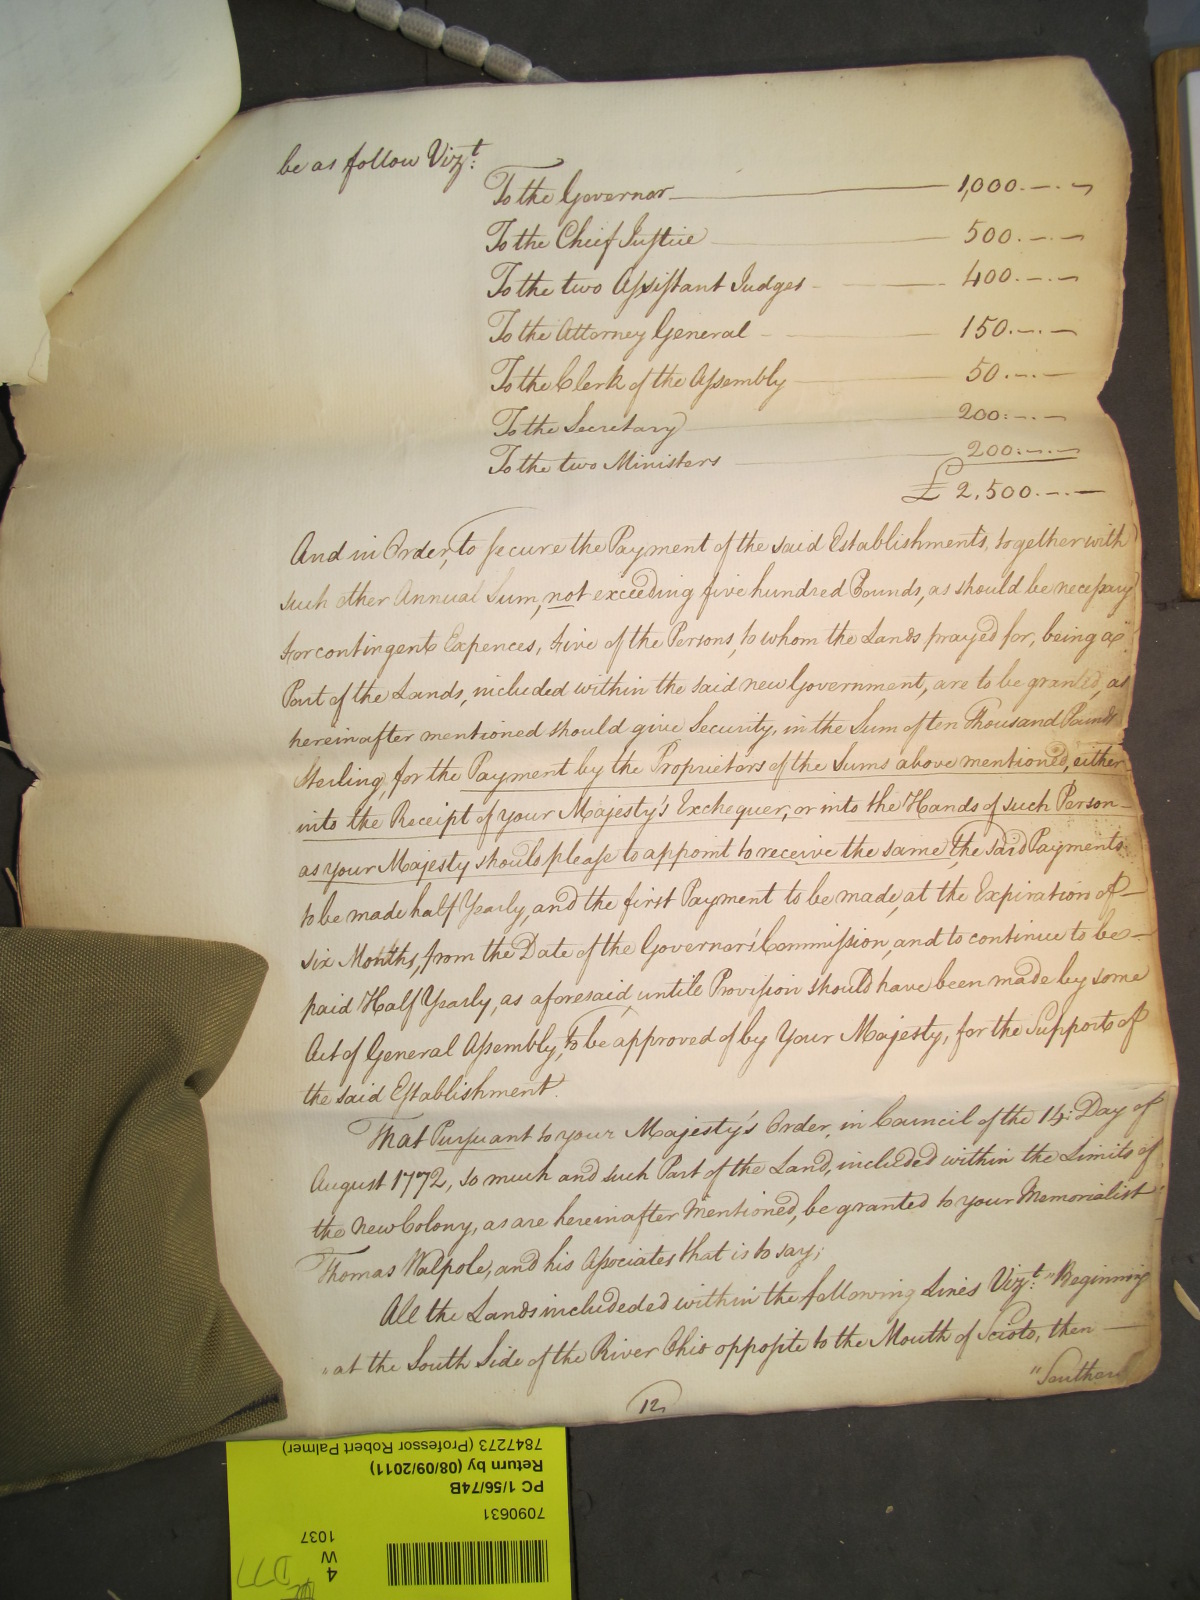 be as follow Vizt:
To the Governor 1,000.-.-
To the Chief Justice 500.-.-
To the two Assistant Judges 400.-.-
To the Attorney General 150.-.-
To the Clerk of the Assembly 50.-.-
To the Secretary 200:-.-
To the two Ministers 200:-.-
£ 2,500.-.-
And in Order, to secure the Payment of the said Establishments, together with
such other Annual Sum, not exceeding five hundred Pounds, as should be necessary
for contingent Expences, five of the Persons, to whom the Lands prayed for, being a
Part of the Lands, included within the said new Government, are to be granted, as
hereinafter mentioned should give Security, in the Sum of ten Thousand Pounds
Sterling, for the Payment by the Proprietors of the Sums above mentioned, either
into the Receipt of your Majesty's Exchequer, or into the Hands of such Person
as your Majesty should please to appoint to receive the same, the said Payments
to be made half Yearly, and the first Payment to be made, at the Expiration of
six Months, from the Date of the Governor's Commission, and to continue to be
paid Half Yearly, as aforesaid, untile Provision should have been made by some
Act of General Assembly, to be approved of by Your Majesty, for the Support of
the said Establishment.
That Pursuant to your Majesty's Order, in Council of the 14: Day of
August 1772, so much and such Part of the Land, included within the Limits of
the new Colony, as are hereinafter Mentioned, be granted to your Memorialist
Thomas Walpole, and his Associates that is to say;
All the Lands includeded within the following Lines Vizt: "Beginning
"at the South Side of the River Ohio opposite to the Mouth of Scioto, then
"Southard
12
7847273 (Professor Robert Palmer)
Return by (08/09/2011)
PC 1/56/74B
7090631
4
W
1037
D77